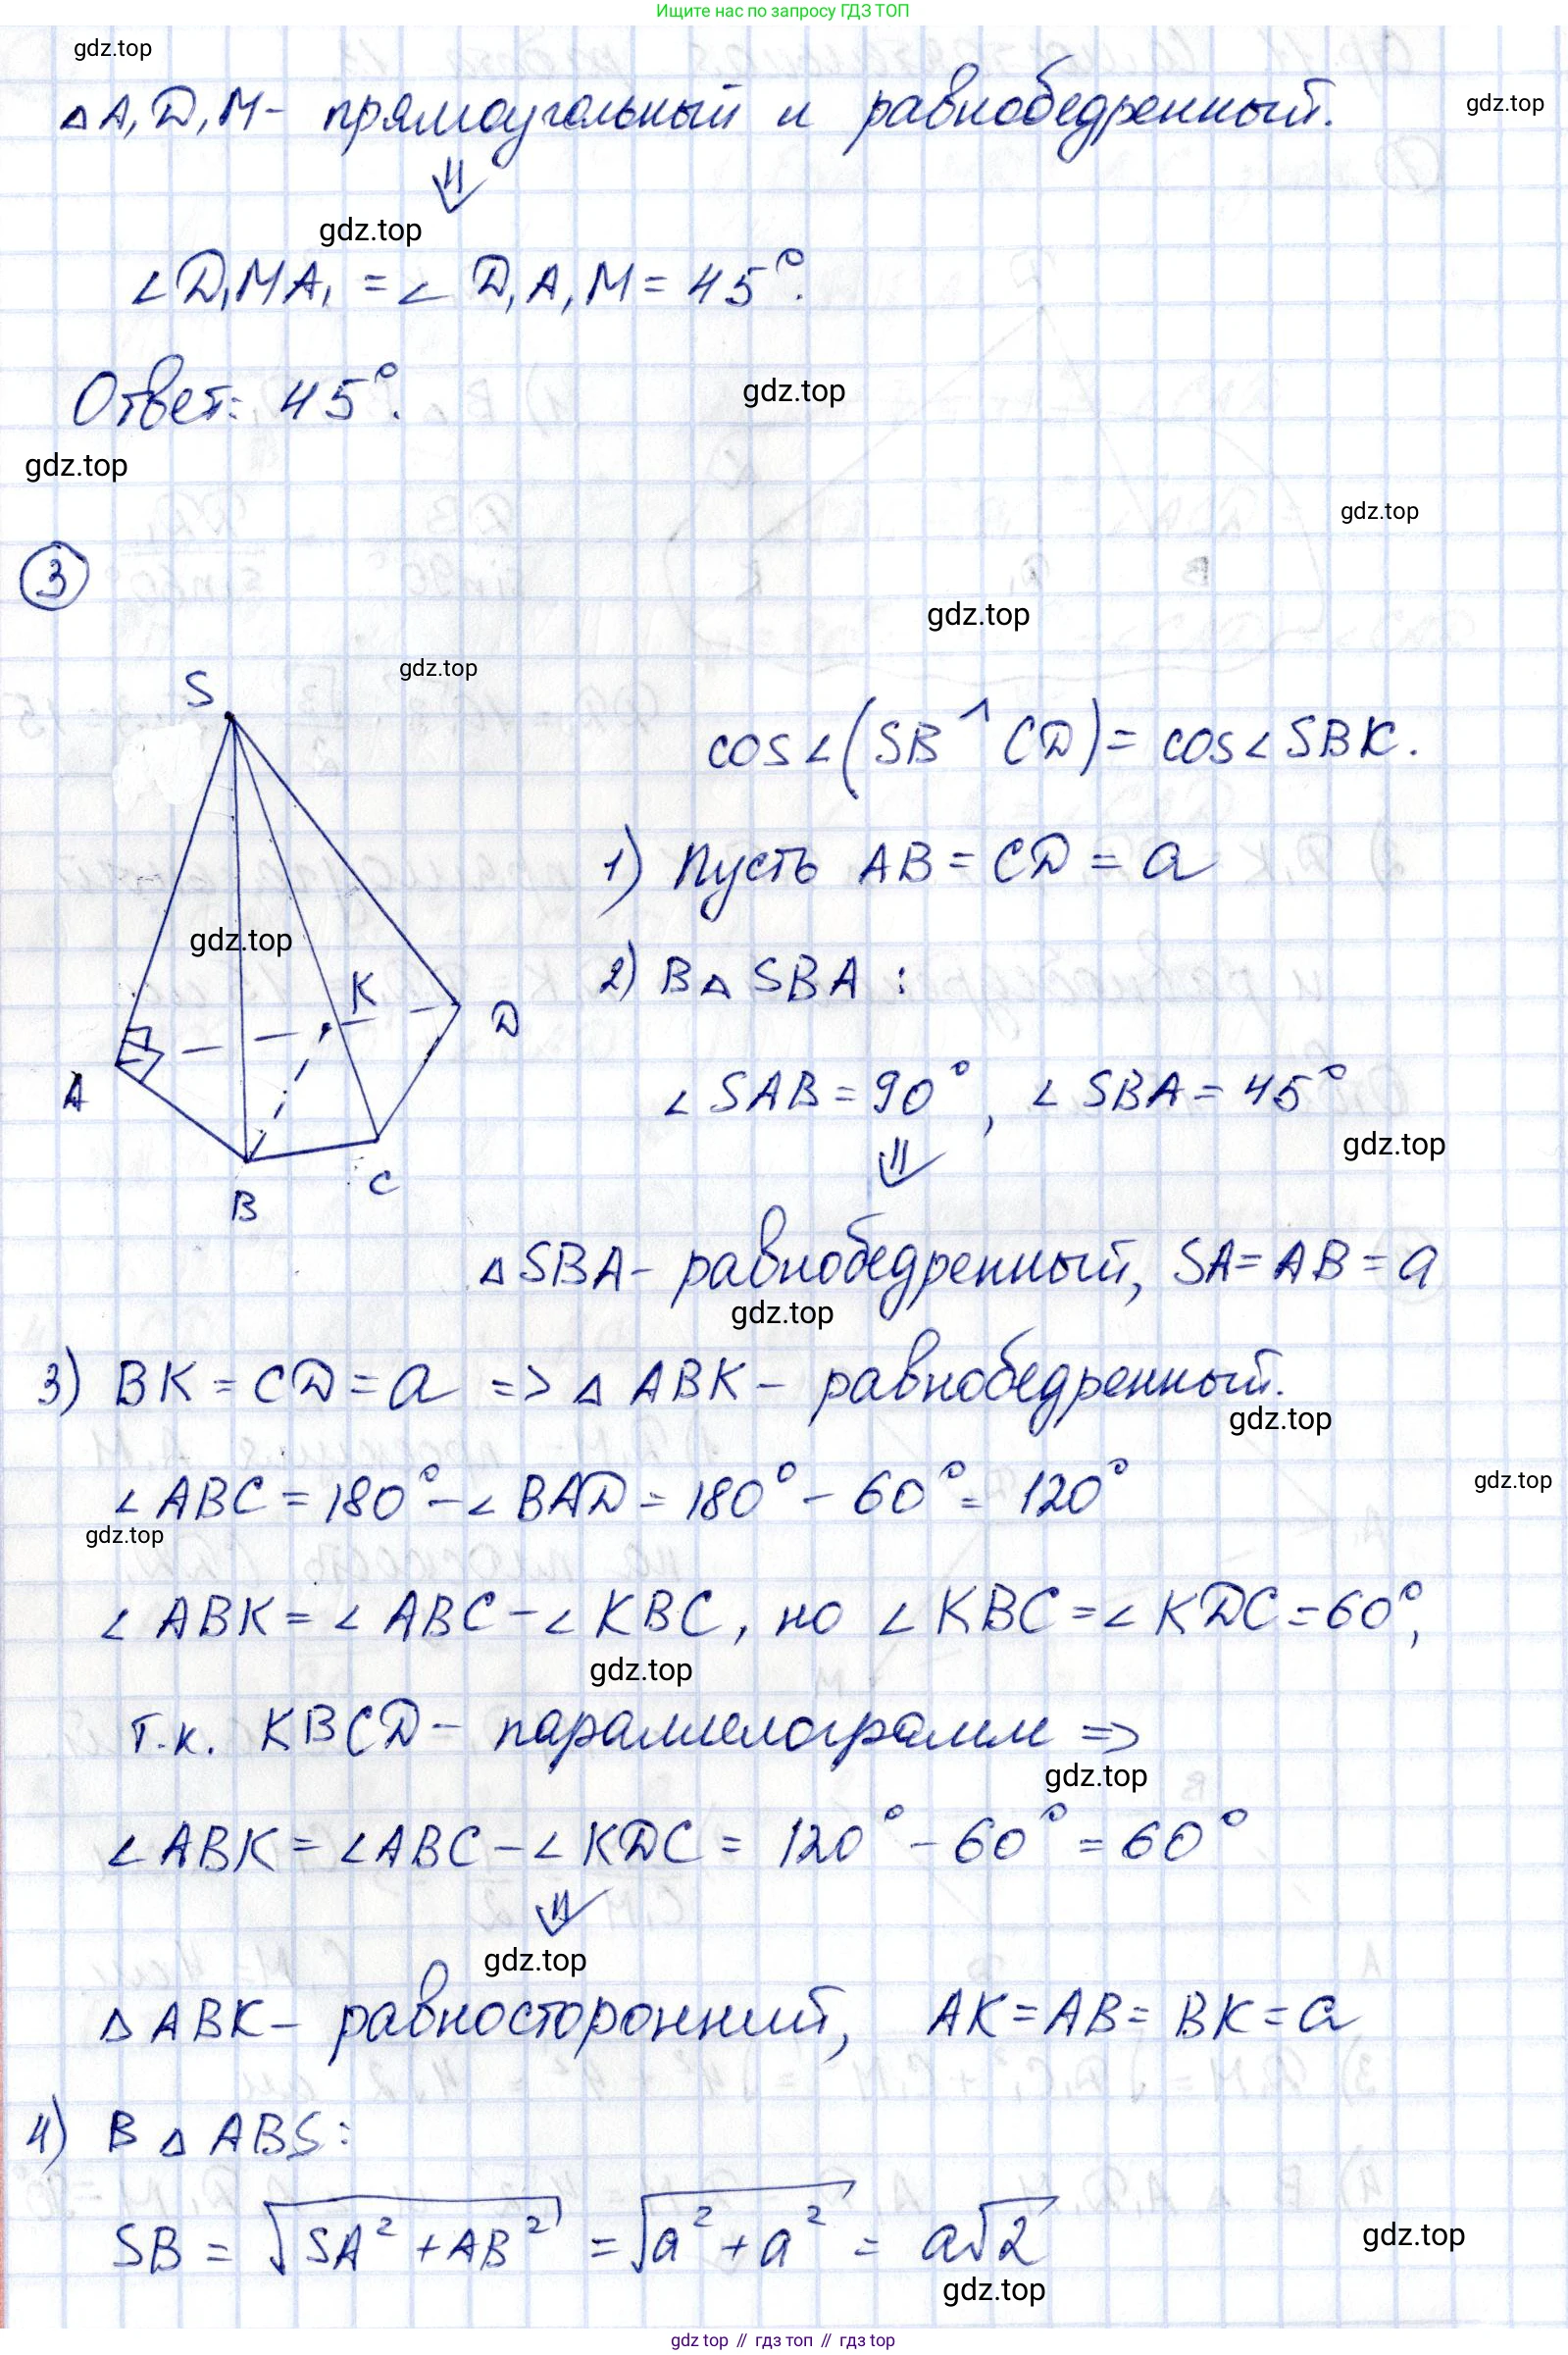 Ищите нас по запросу ГДЗ ТОП
gdz.top
△A₁D₁M - прямоугольный и равнобедренный.
gdz.top
⇓
gdz.top
∠D₁MA₁ = ∠D₁A₁M = 45°.
Ответ: 45°.
gdz.top
gdz.top
gdz.top
③
gdz.top
gdz.top
S
cos∠(SB^CD) = cos∠SBK.
1) Пусть AB = CD = a
gdz.top
2) В △SBA:
K
D
A
∠SAB = 90°, ∠SBA = 45°
gdz.top
⇓
C
B
△SBA - равнобедренный, SA = AB = a
gdz.top
3) BK = CD = a => △ABK - равнобедренный.
gdz.top
∠ABC = 180° - ∠BAD = 180° - 60° = 120°
gdz.top
gdz.top
∠ABK = ∠ABC - ∠KBC, но ∠KBC = ∠KDC = 60°,
gdz.top
т.к. KBCD - параллелограмм =>
gdz.top
∠ABK = ∠ABC - ∠KDC = 120° - 60° = 60°
⇓
gdz.top
△ABK - равносторонний, AK = AB = BK = a
4) В △ABS:
SB = √(SA² + AB²) = √(a² + a²) = a√2
gdz.top
gdz.top
gdz top // гдз топ // гдз top